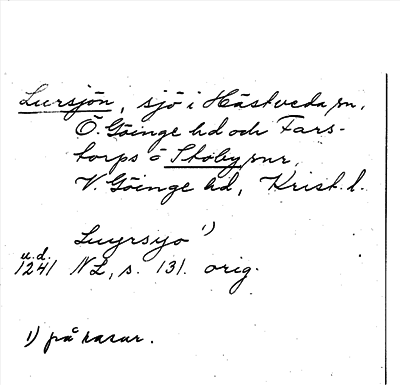 Lursjön, sjö i Hästveda sn,
Ö. Göinge hd och Fars-
torps o Stoby snr,
V. Göinge hd, Krist. l.
Luyrsyo 1)
u.d.
1241 NL, s. 131. orig.
1) på rasur.